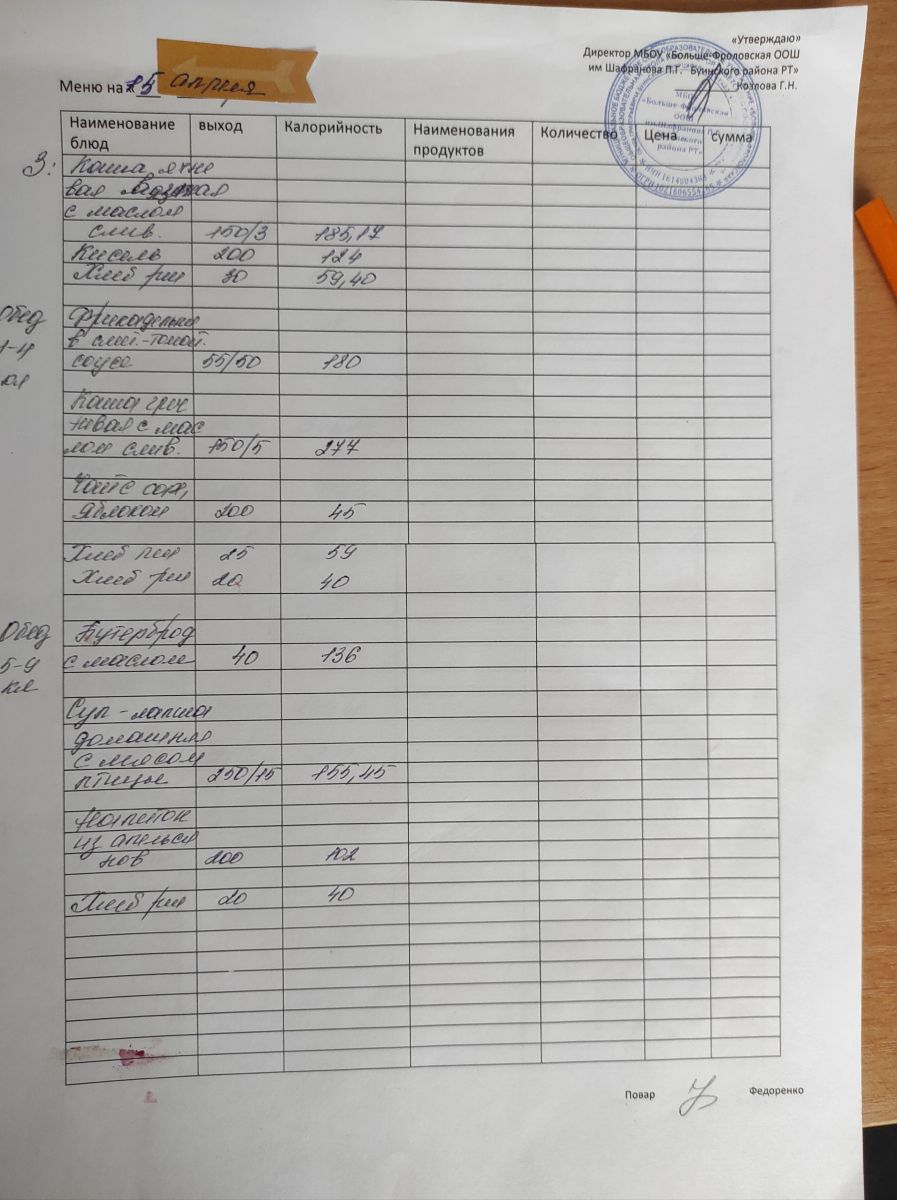 «Утверждаю»
Директор МБОУ «Больше-Фроловская ООШ
им Шафранова П.Г." Буинского района РТ»
Козлова Г.Н.
Меню на 15 апреля
Наименование блюд выход Калорийность Наименования продуктов Количество Цена сумма
З: Каша ячне
вая
с маслом
слив. 150/3 185,17
Кисель 200 124
Хлеб рж 30 59,40
Обед Фрикадельки
1-4 в смет.-томат.
кл соусе 55/50 180
Каша греч
невая с мас
лом слив. 150/5 277
Чай с сах,
яблоком 200 45
Хлеб пш 25 59
Хлеб рж 20 40
Обед Бутерброд
5-9 с маслом 40 136
кл
Суп-лапша
домашняя
с мясом
птицы 250/15 155,45
Напиток
из апельси
нов 200 102
Хлеб рж 20 40
Повар Федоренко
МБОУ
«Больше-Фроловская
ООШ
им.Шафранова П.Г.
Буинского
района РТ»